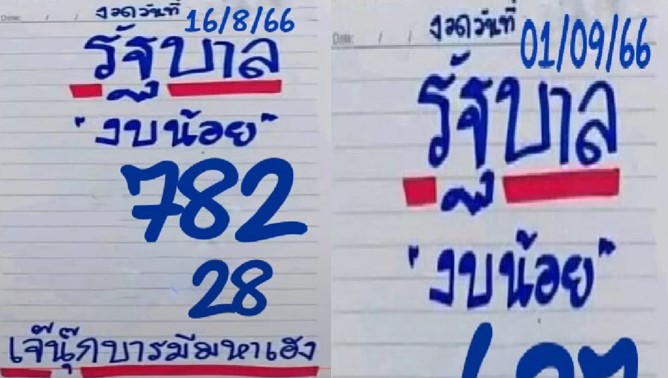 Date: / /
งวดวันที่ 16/8/66
รัฐบาล
"งบน้อย"
782
28
เจ๊นุ๊กบารมีมหาเฮง
Date: / /
งวดวันที่ 01/09/66
รัฐบาล
"งบน้อย"